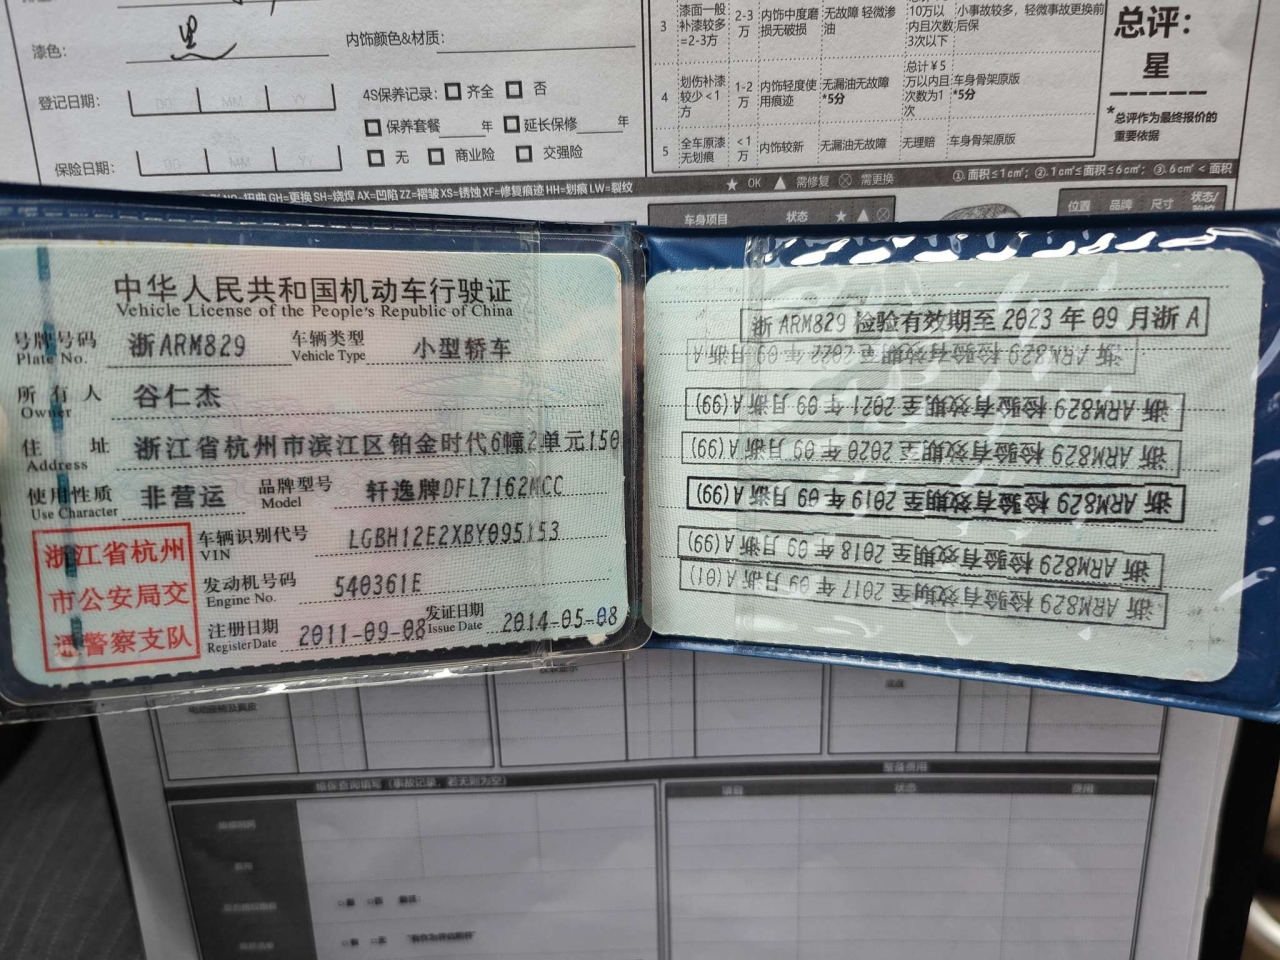 3
漆面一般
补漆较多
=2-3方
2-3
万
内饰中度磨
损无破损
无故障 轻微渗
油
10万以
内且次数
3次以下
小事故较多，轻微事故更换前
后保
总评：
星
漆色：
黑
内饰颜色&材质：
4
划伤补漆
较少<1
方
1-2
万
内饰轻度使
用痕迹
无漏油无故障
*5分
总计￥5
万以内且
次数为1
次
车身骨架原版
*5分
*总评作为最终报价的
重要依据
登记日期：
DD MM YY
4S保养记录： 齐全 否
保养套餐 年 延长保修 年
5
全车原漆
无划痕
<1
万
内饰较新
无漏油无故障
无理赔
车身骨架原版
保险日期：
DD MM YY
无 商业险 交强险
★ OK ▲ 需修复 ⊗ 需更换
①.面积≤1cm²；②.1cm²≤面积≤6cm²；③.6cm²<面积
=扭曲 GH=更换 SH=烧焊 AX=凹陷 ZZ=褶皱 XS=锈蚀 XF=修复痕迹 HH=划痕 LW=裂纹
车身项目 状态 ★ ▲ ⊗
位置 品牌 尺寸 状态/
中华人民共和国机动车行驶证
Vehicle License of the People's Republic of China
号牌号码 浙ARM829 车辆类型 小型轿车
Plate No. Vehicle Type
所有人 谷仁杰
Owner
住址 浙江省杭州市滨江区铂金时代6幢2单元150
Address
使用性质 非营运 品牌型号 轩逸牌DFL7162MCC
Use Character Model
浙江省杭州
市公安局交
通警察支队
车辆识别代号 LGBH12E2XBY095153
VIN
发动机号码 540361E
Engine No.
注册日期 2011-09-08 发证日期 2014-05-08
Register Date Issue Date
浙ARM829 检验有效期至2023年09月浙A
浙ARM829 检验有效期至2022年09月浙A
浙ARM829 检验有效期至2021年09月浙A(99)
浙ARM829 检验有效期至2020年09月浙A(99)
浙ARM829 检验有效期至2019年09月浙A(99)
浙ARM829 检验有效期至2018年09月浙A(99)
浙ARM829 检验有效期至2017年09月浙A(01)
项目 状态 费用